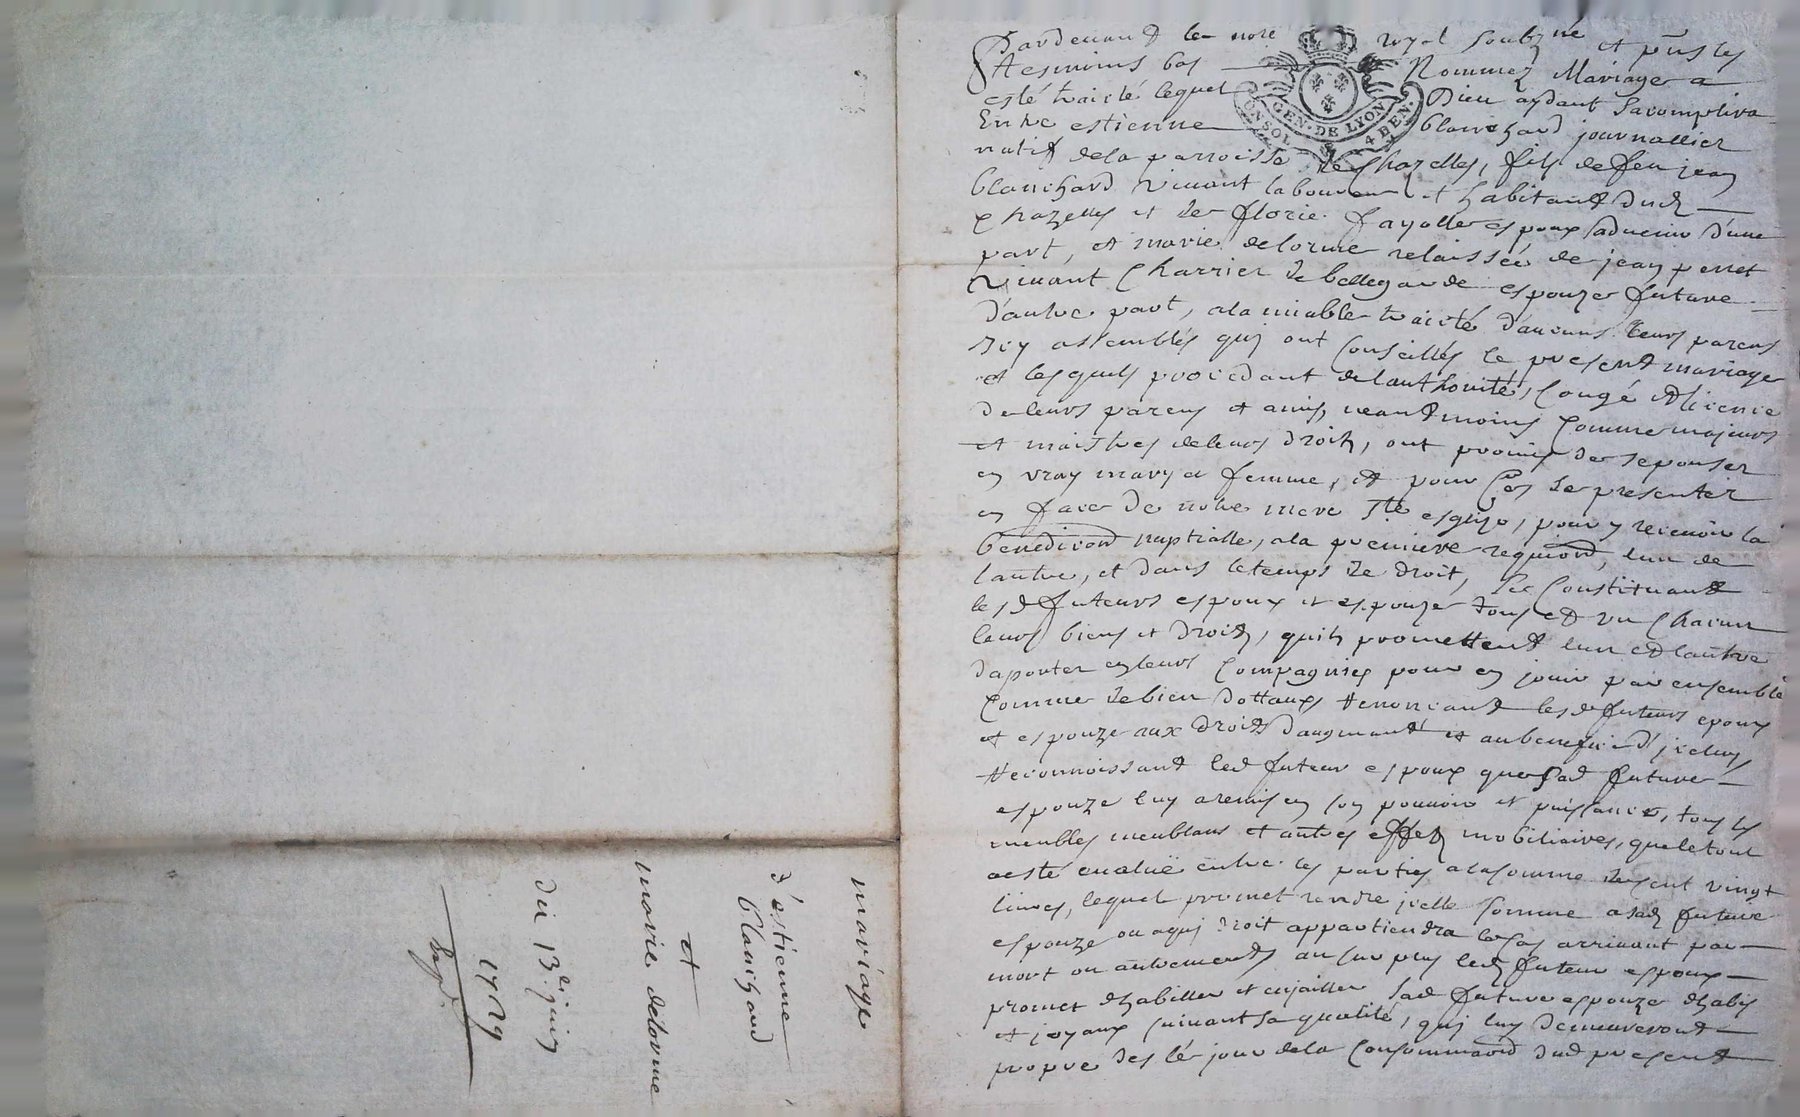 mariage
d'estienne
blanchard
et
marie delorme
du 13e. juin
1729
Expd.
Pardevant le nore royal soubzné et pnts les
tesmoins bas Nommez Mariage a
esté traicté lequel Dieu aydant sacomplira
Entre estienne blanchard journallier
GEN. DE LYON
UN SOL 4 DEN.
natif dela parroisse de Chazelles, fils de feu jean
blanchard vivant laboureur et habitant dud
Chazelles et de florie fayolle espoux advenir d'une
part, et marie delorme relaissée de jean perret
vivant Charrier de bellegarde espouze future
d'autre part, alamiable traicté d'aucuns leurs parens
icy assemblés quj ont Conseillés le present mariage
et lesquels procedant del'authorité, Congé et licence
de leurs parens et amis, neantmoins Comme majeurs
et maistres de leurs droits, ont promis de sepouser
en vray mary et femme, et pour Ces se presenter
en face de notre mere Ste esglize, pour y recevoir la
benediction nuptialle, ala premiere requiond, lun de
lautre, et dans le temps de droit, se Constituant
lesd futeurs espoux et espouze tous et un Chacun
leurs biens et droits, quils promettent lun et lautre
daporter en leurs Compagnies pour en jouir par ensemble
Comme de bien dottaux renoncant lesd futeurs epoux
et espouze aux droits daugmant et au benefice d'icelluy
reconnoissant led futeur espoux que sad future
espouze luy a remis en son pouvoir et puissance, tous les
meubles meublans et autres effets mobiliaires, que le tout
a esté evalué entre les parties a la somme de cent vingt
livres, lequel promet rendre jcelle somme a sad future
espouze ou a quj droit appartiendra le cas arrivant par
mort ou autrement au surplus led futeur espoux
promet dhabiller et enjailler sad future espouze dhabis
et joyaux suivant sa qualité, quj luy demeureront
propre des le jour de la Consommaond dud present